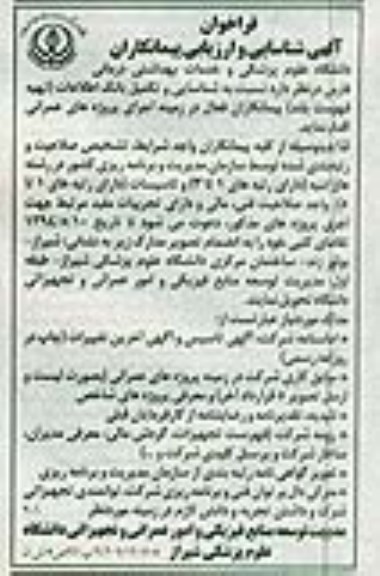 فراخوان
آگهی شناسایی و ارزیابی پیمانکاران
دانشگاه علوم پزشکی و خدمات بهداشتی درمانی
فارس درنظر دارد نسبت به شناسایی و تکمیل بانک اطلاعات (تهیه
فهرست بلند) پیمانکاران فعال در زمینه اجرای پروژه های عمرانی
اقدام نماید.
لذا بدینوسیله از کلیه پیمانکاران واجد شرایط، تشخیص صلاحیت و
رتبه‌بندی شده توسط سازمان مدیریت و برنامه ریزی کشور در رشته
های ابنیه (دارای رتبه های ۱ تا ۳) و تاسیسات (دارای رتبه های ۱ تا
واجد صلاحیت فنی، مالی و دارای تجربیات مفید مرتبط جهت
اجرای پروژه های مذکور، دعوت می شود تا تاریخ
تقاضای کتبی خود را به انضمام تصویر مدارک زیر به نشانی: شیراز-
ساختمان مرکزی دانشگاه علوم پزشکی شیراز- طبقه
اول- مدیریت توسعه منابع فیزیکی و امور عمرانی و تجهیزاتی
دانشگاه تحویل نمایند.
مدارک موردنیاز عبارتست از:
* اساسنامه شرکت، آگهی تاسیس و آگهی آخرین تغییرات (چاپ در
روزنامه رسمی)
* سوابق کاری شرکت در زمینه پروژه های عمرانی (بصورت لیست و
ارسال تصویر قرارداد آخر) و معرفی پروژه های شاخص
* تاییدیه، تقدیرنامه و رضایتنامه از کارفرمایان قبلی
شرکت (فهرست تجهیزات، گردش مالی، معرفی مدیران،
ساختار شرکت و پرسنل کلیدی شرکت و ...)
* تصویر گواهی نامه رتبه بندی از سازمان مدیریت و برنامه ریزی
دال بر توان فنی و برنامه‌ریزی شرکت، توانمندی تجهیزاتی
شرکت و داشتن تجربه و دانش لازم در زمینه موردنظر
مدیریت توسعه منابع فیزیکی و امور عمرانی و تجهیزاتی دانشگاه
علوم پزشکی شیراز